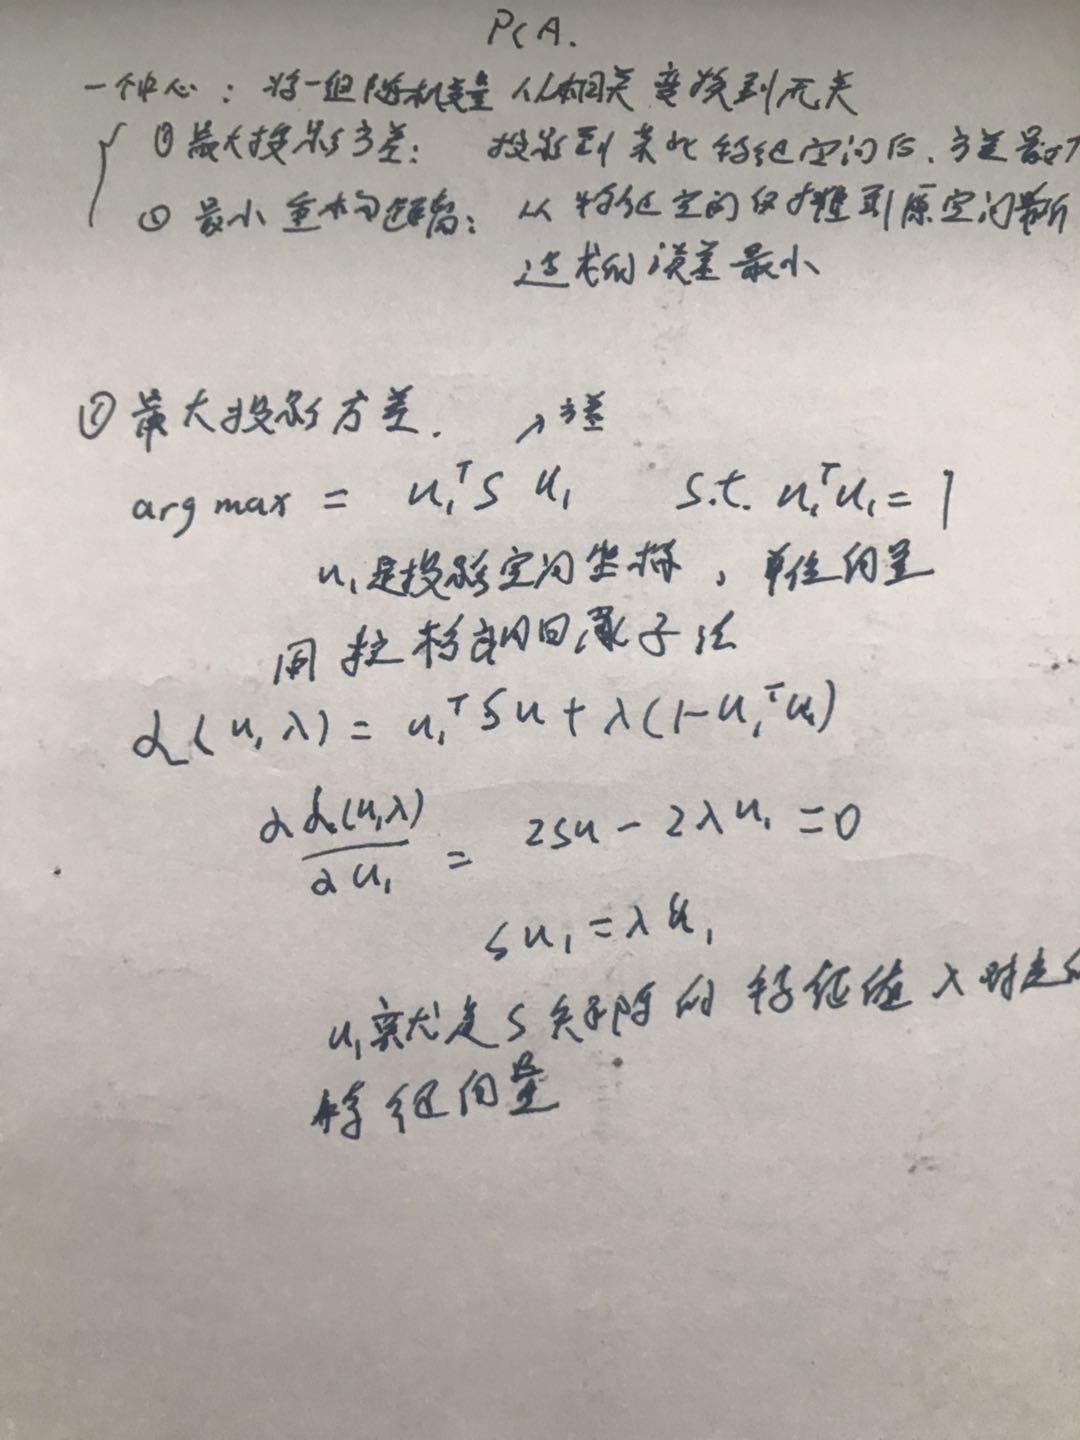 PCA.
一个中心：将一组随机变量 从相关变换到无关
① 最大投影方差： 投影到某个特征空间后，方差最大
② 最小重构距离： 从特征空间反推到原空间所
造成的误差最小
① 最大投影方差. ↗方差
arg max = u₁ᵀ S u₁ s.t. u₁ᵀu₁ = 1
u₁是投影空间坐标，单位向量
用拉格朗日乘子法
L(u, λ) = u₁ᵀSu + λ(1-u₁ᵀu₁)
∂L(u,λ)/∂u₁ = 2Su - 2λu₁ = 0
Su₁ = λu₁
u₁就是S矩阵的特征值λ对应的
特征向量